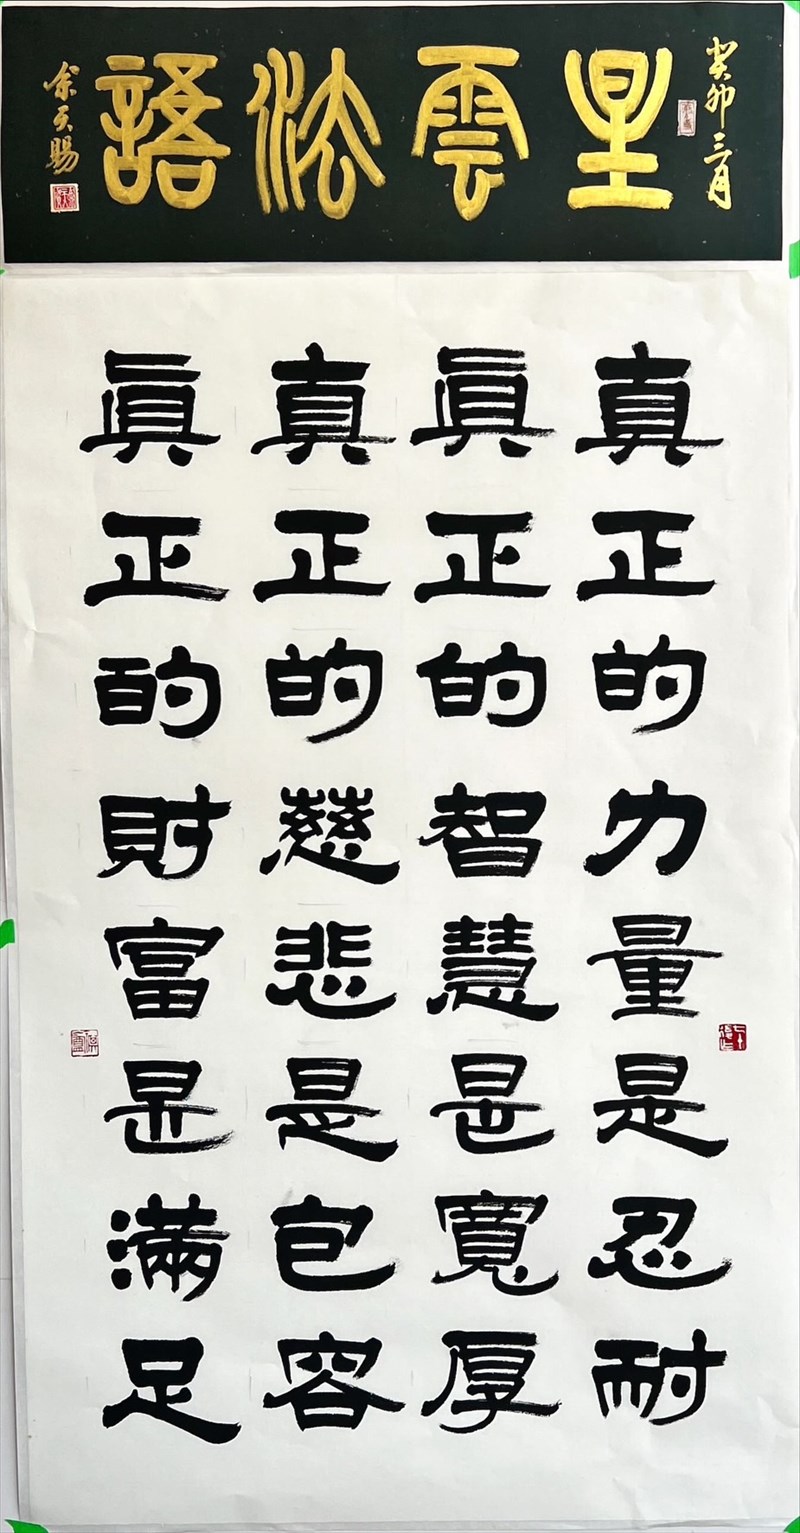 癸卯三月
星雲法語
余天賜
真正的力量是忍耐
眞正的智慧是寬厚
真正的慈悲是包容
眞正的財富是滿足